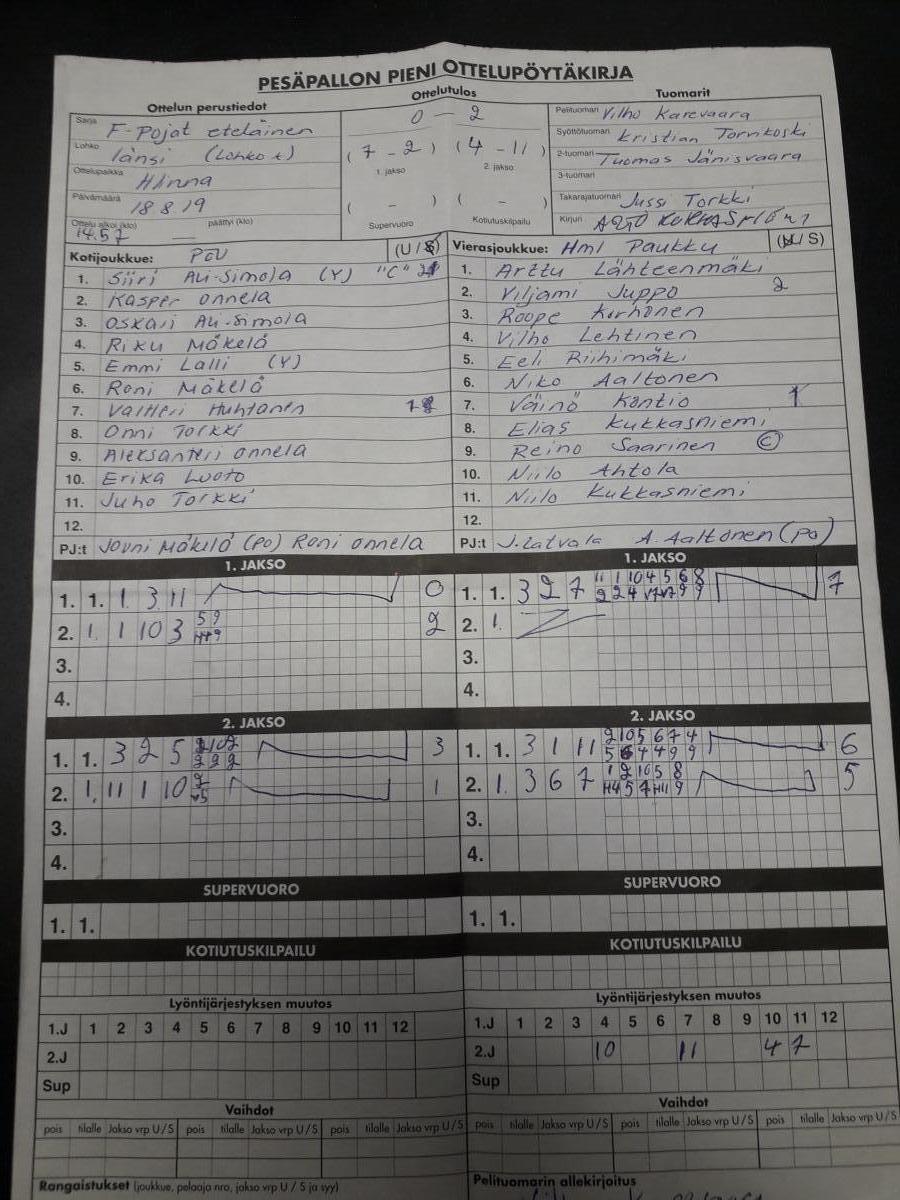 PESÄPALLON PIENI OTTELUPÖYTÄKIRJA
Ottelun perustiedot
Sarja F-Pojat eteläinen
Lohko länsi (Lohko 1)
Ottelupaikka Hlinna
Päivämäärä 18.8.19
Ottelu alkoi (klo) 14.57 päättyi (klo)
Ottelutulos
0 - 2
(7 - 2) (4 - 11)
1. jakso 2. jakso
( - ) ( - )
Supervuoro Kotiutuskilpailu
Tuomarit
Pelituomari Vilho Karevaara
Syöttötuomari Kristian Torvikoski
2-tuomari Tuomas Jänisvaara
3-tuomari
Takarajatuomari Jussi Torkki
Kirjuri
Kotijoukkue: PöU (U/S)
1. Siiri Ali-Simola (Y) "C"
2. Kasper Onnela
3. Oskari Ali-Simola
4. Riku Mäkelä
5. Emmi Lalli (Y)
6. Roni Mäkelä
7. Valtteri Huhtanen
8. Onni Torkki
9. Aleksanteri Onnela
10. Erika Luoto
11. Juho Torkki
12.
PJ:t Jouni Mäkelä (PO) Roni Onnela
Vierasjoukkue: Hml Paukku (U/S)
1. Arttu Lähteenmäki
2. Viljami Juppo 2
3. Roope Korhonen
4. Vilho Lehtinen
5. Eeli Riihimäki
6. Niko Aaltonen
7. Väinö Kontio 1
8. Elias Kukkasniemi
9. Reino Saarinen ©
10. Niilo Ahtola
11. Niilo Kukkasniemi
12.
PJ:t J. Latvala A. Aaltonen (PO)
1. JAKSO
1. 1. 1 3 11 0
2. 1. 1 10 3 5 9 2
3.
4.
1. JAKSO
1. 1. 3 2 7 11 1 10 4 5 6 8 7
2. 1.
3.
4.
2. JAKSO
1. 1. 3 2 5 3
2. 1. 11 1 10 1
3.
4.
2. JAKSO
1. 1. 3 1 11 2 10 5 6 7 4 6
2. 1. 3 6 7 1 2 10 5 8 5
3.
4.
SUPERVUORO
1. 1.
SUPERVUORO
1. 1.
KOTIUTUSKILPAILU
KOTIUTUSKILPAILU
Lyöntijärjestyksen muutos
1.J 1 2 3 4 5 6 7 8 9 10 11 12
2.J
Sup
Lyöntijärjestyksen muutos
1.J 1 2 3 4 5 6 7 8 9 10 11 12
2.J 10 11 4 7
Sup
Vaihdot
pois tilalle Jakso vrp U/S pois tilalle Jakso vrp U/S pois tilalle Jakso vrp U/S
Vaihdot
pois tilalle Jakso vrp U/S pois tilalle Jakso vrp U/S pois tilalle Jakso vrp U/S
Rangaistukset (joukkue, pelaaja nro, jakso vrp U / S ja syy)
Pelituomarin allekirjoitus